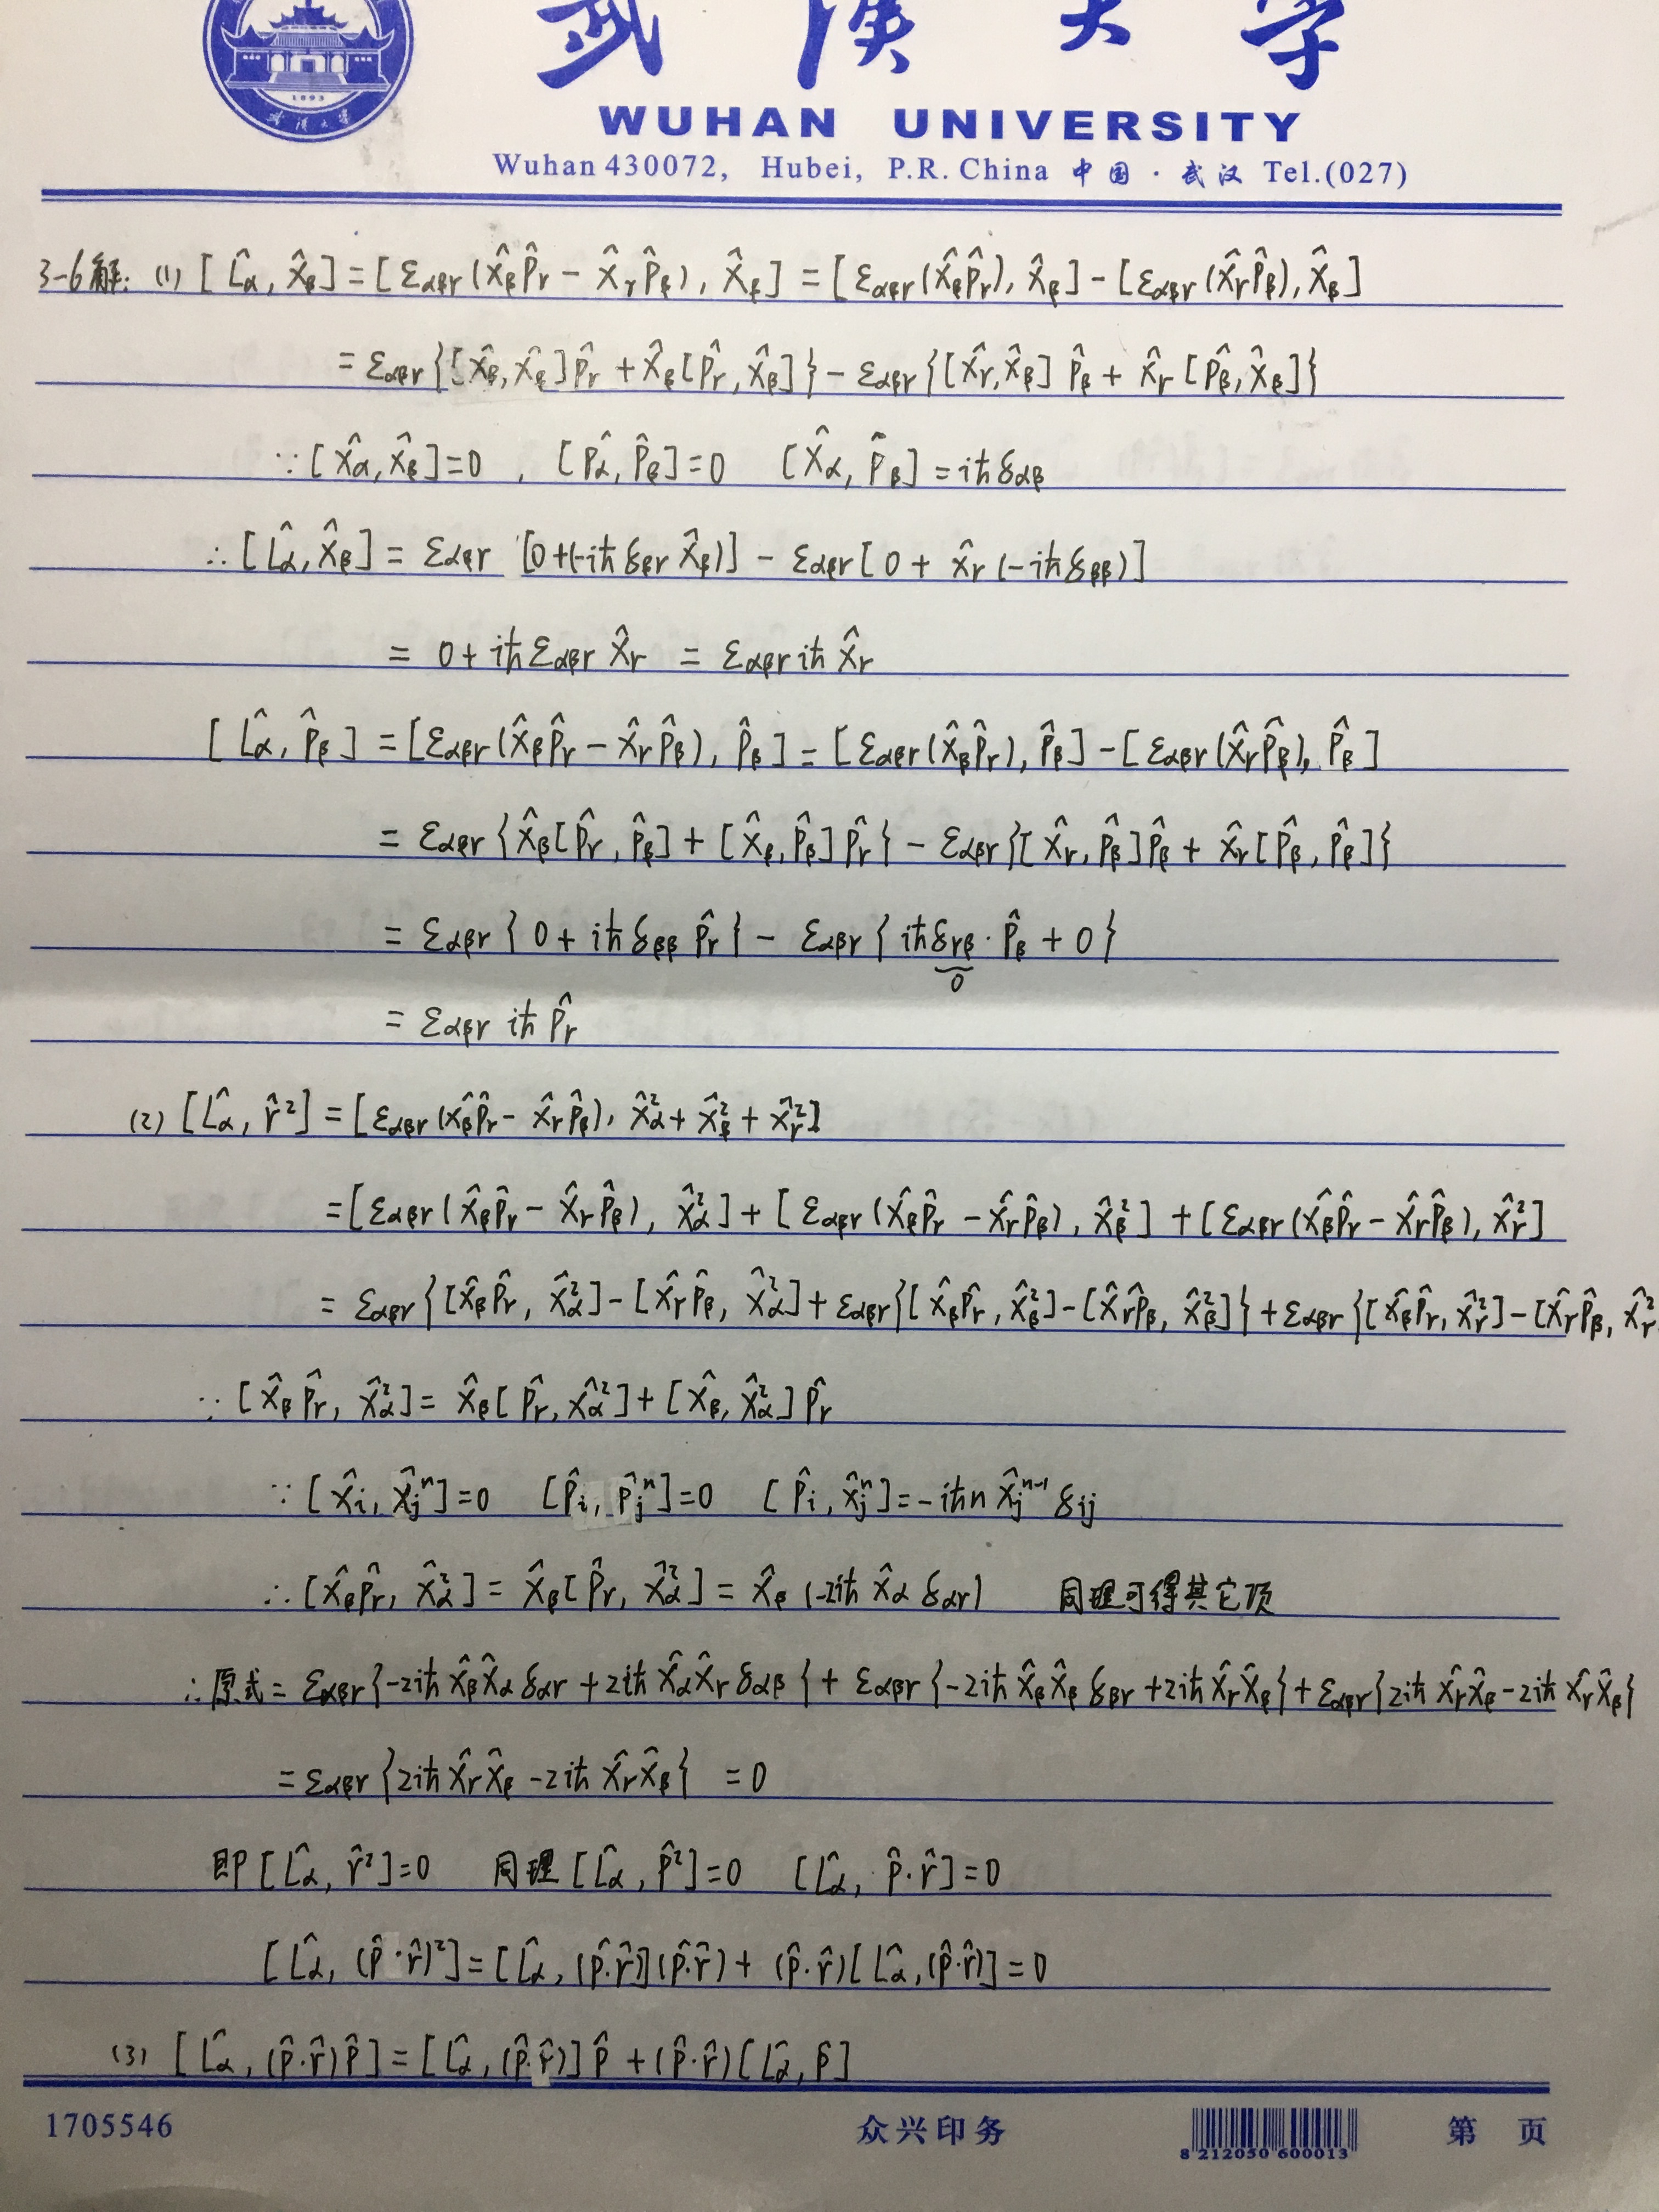 武漢大学
1893
武漢大學
WUHAN UNIVERSITY
Wuhan 430072, Hubei, P.R. China 中国·武汉 Tel.(027)
3-6解: (1) [L̂α, X̂β] = [εαβγ(X̂βP̂γ - X̂γP̂β), X̂β] = [εαβγ(X̂βP̂γ), X̂β] - [εαβγ(X̂γP̂β), X̂β]
= εαβγ{[X̂β, X̂β]P̂γ + X̂β[P̂γ, X̂β]} - εαβγ{[X̂γ, X̂β]P̂β + X̂γ[P̂β, X̂β]}
∵ [X̂α, X̂β]=0 , [P̂α, P̂β]=0 [X̂α, P̂β] = iħδαβ
∴ [L̂α, X̂β] = εαβγ [0+(-iħδβγX̂β)] - εαβγ[0 + X̂γ(-iħδββ)]
= 0 + iħεαβγX̂γ = εαβγiħX̂γ
[L̂α, P̂β] = [εαβγ(X̂βP̂γ - X̂γP̂β), P̂β] = [εαβγ(X̂βP̂γ), P̂β] - [εαβγ(X̂γP̂β), P̂β]
= εαβγ{X̂β[P̂γ, P̂β] + [X̂β, P̂β]P̂γ} - εαβγ{[X̂γ, P̂β]P̂β + X̂γ[P̂β, P̂β]}
= εαβγ{0 + iħδββP̂γ} - εαβγ{iħδγβ·P̂β + 0}
0
= εαβγ iħP̂γ
(2) [L̂α, r̂²] = [εαβγ(X̂βP̂γ - X̂γP̂β), X̂α² + X̂β² + X̂γ²]
= [εαβγ(X̂βP̂γ - X̂γP̂β), X̂α²] + [εαβγ(X̂βP̂γ - X̂γP̂β), X̂β²] + [εαβγ(X̂βP̂γ - X̂γP̂β), X̂γ²]
= εαβγ{[X̂βP̂γ, X̂α²] - [X̂γP̂β, X̂α²] + εαβγ{[X̂βP̂γ, X̂β²] - [X̂γP̂β, X̂β²]} + εαβγ{[X̂βP̂γ, X̂γ²] - [X̂γP̂β, X̂γ²
∵ [X̂βP̂γ, X̂α²] = X̂β[P̂γ, X̂α²] + [X̂β, X̂α²]P̂γ
∵ [X̂i, X̂jⁿ]=0 [P̂i, P̂jⁿ]=0 [P̂i, X̂jⁿ] = -iħnX̂jⁿ⁻¹δij
∴ [X̂βP̂γ, X̂α²] = X̂β[P̂γ, X̂α²] = X̂β(-2iħX̂αδαγ) 同理可得其它项
∴ 原式 = εαβγ{-2iħX̂βX̂αδαγ + 2iħX̂αX̂γδαβ} + εαβγ{-2iħX̂βX̂βδβγ + 2iħX̂γX̂β} + εαβγ{2iħX̂γX̂β - 2iħX̂γX̂β}
= εαβγ{2iħX̂γX̂β - 2iħX̂γX̂β} = 0
即[L̂α, r̂²]=0 同理[L̂α, P̂²]=0 [L̂α, P̂·r̂]=0
[L̂α, (P̂·r̂)²] = [L̂α, (P̂·r̂)](P̂·r̂) + (P̂·r̂)[L̂α, (P̂·r̂)] = 0
(3) [L̂α, (P̂·r̂)P̂] = [L̂α, (P̂·r̂)]P̂ + (P̂·r̂)[L̂α, P̂]
1705546 众兴印务 8 212050 600013 第 页